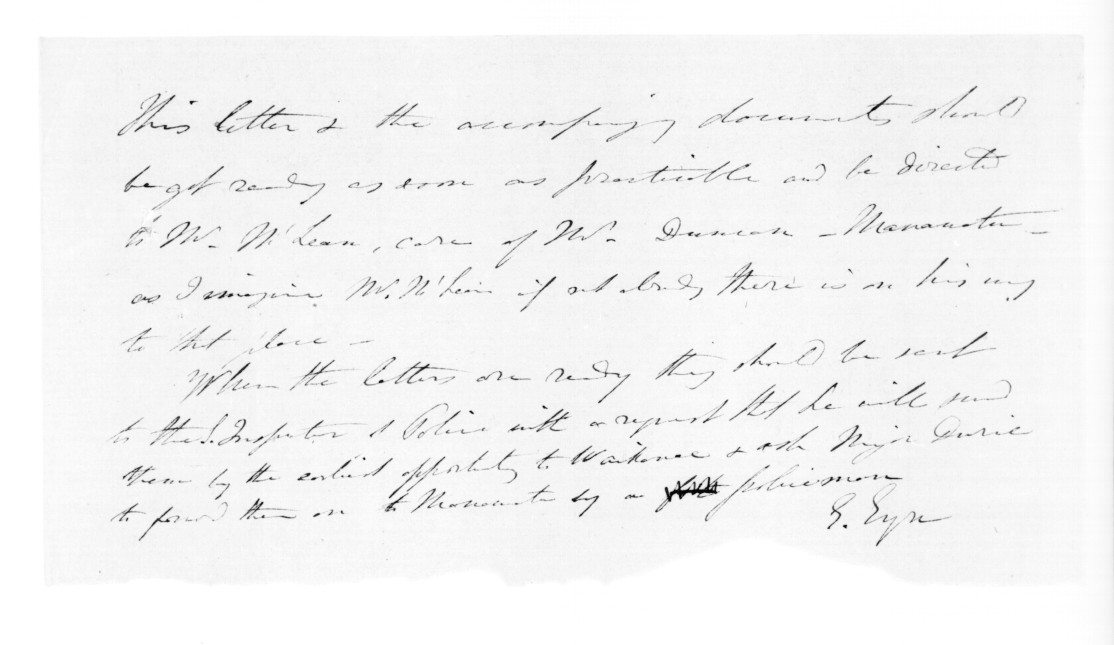 This letter & the accompanying documents should
be got ready as soon as practicable and be directed
to Mr. McLean, care of Mr. Duncan - Manawatu -
as I imagine Mr. McLean if not already there is on his way
to that place -
When the letters are ready they should be sent
to the S. Inspector of Police with a request that he will send
them by the earliest opportunity to Waikanae & ask Major Durie
to forward them on to Manawatu by a policeman
E. Eyre